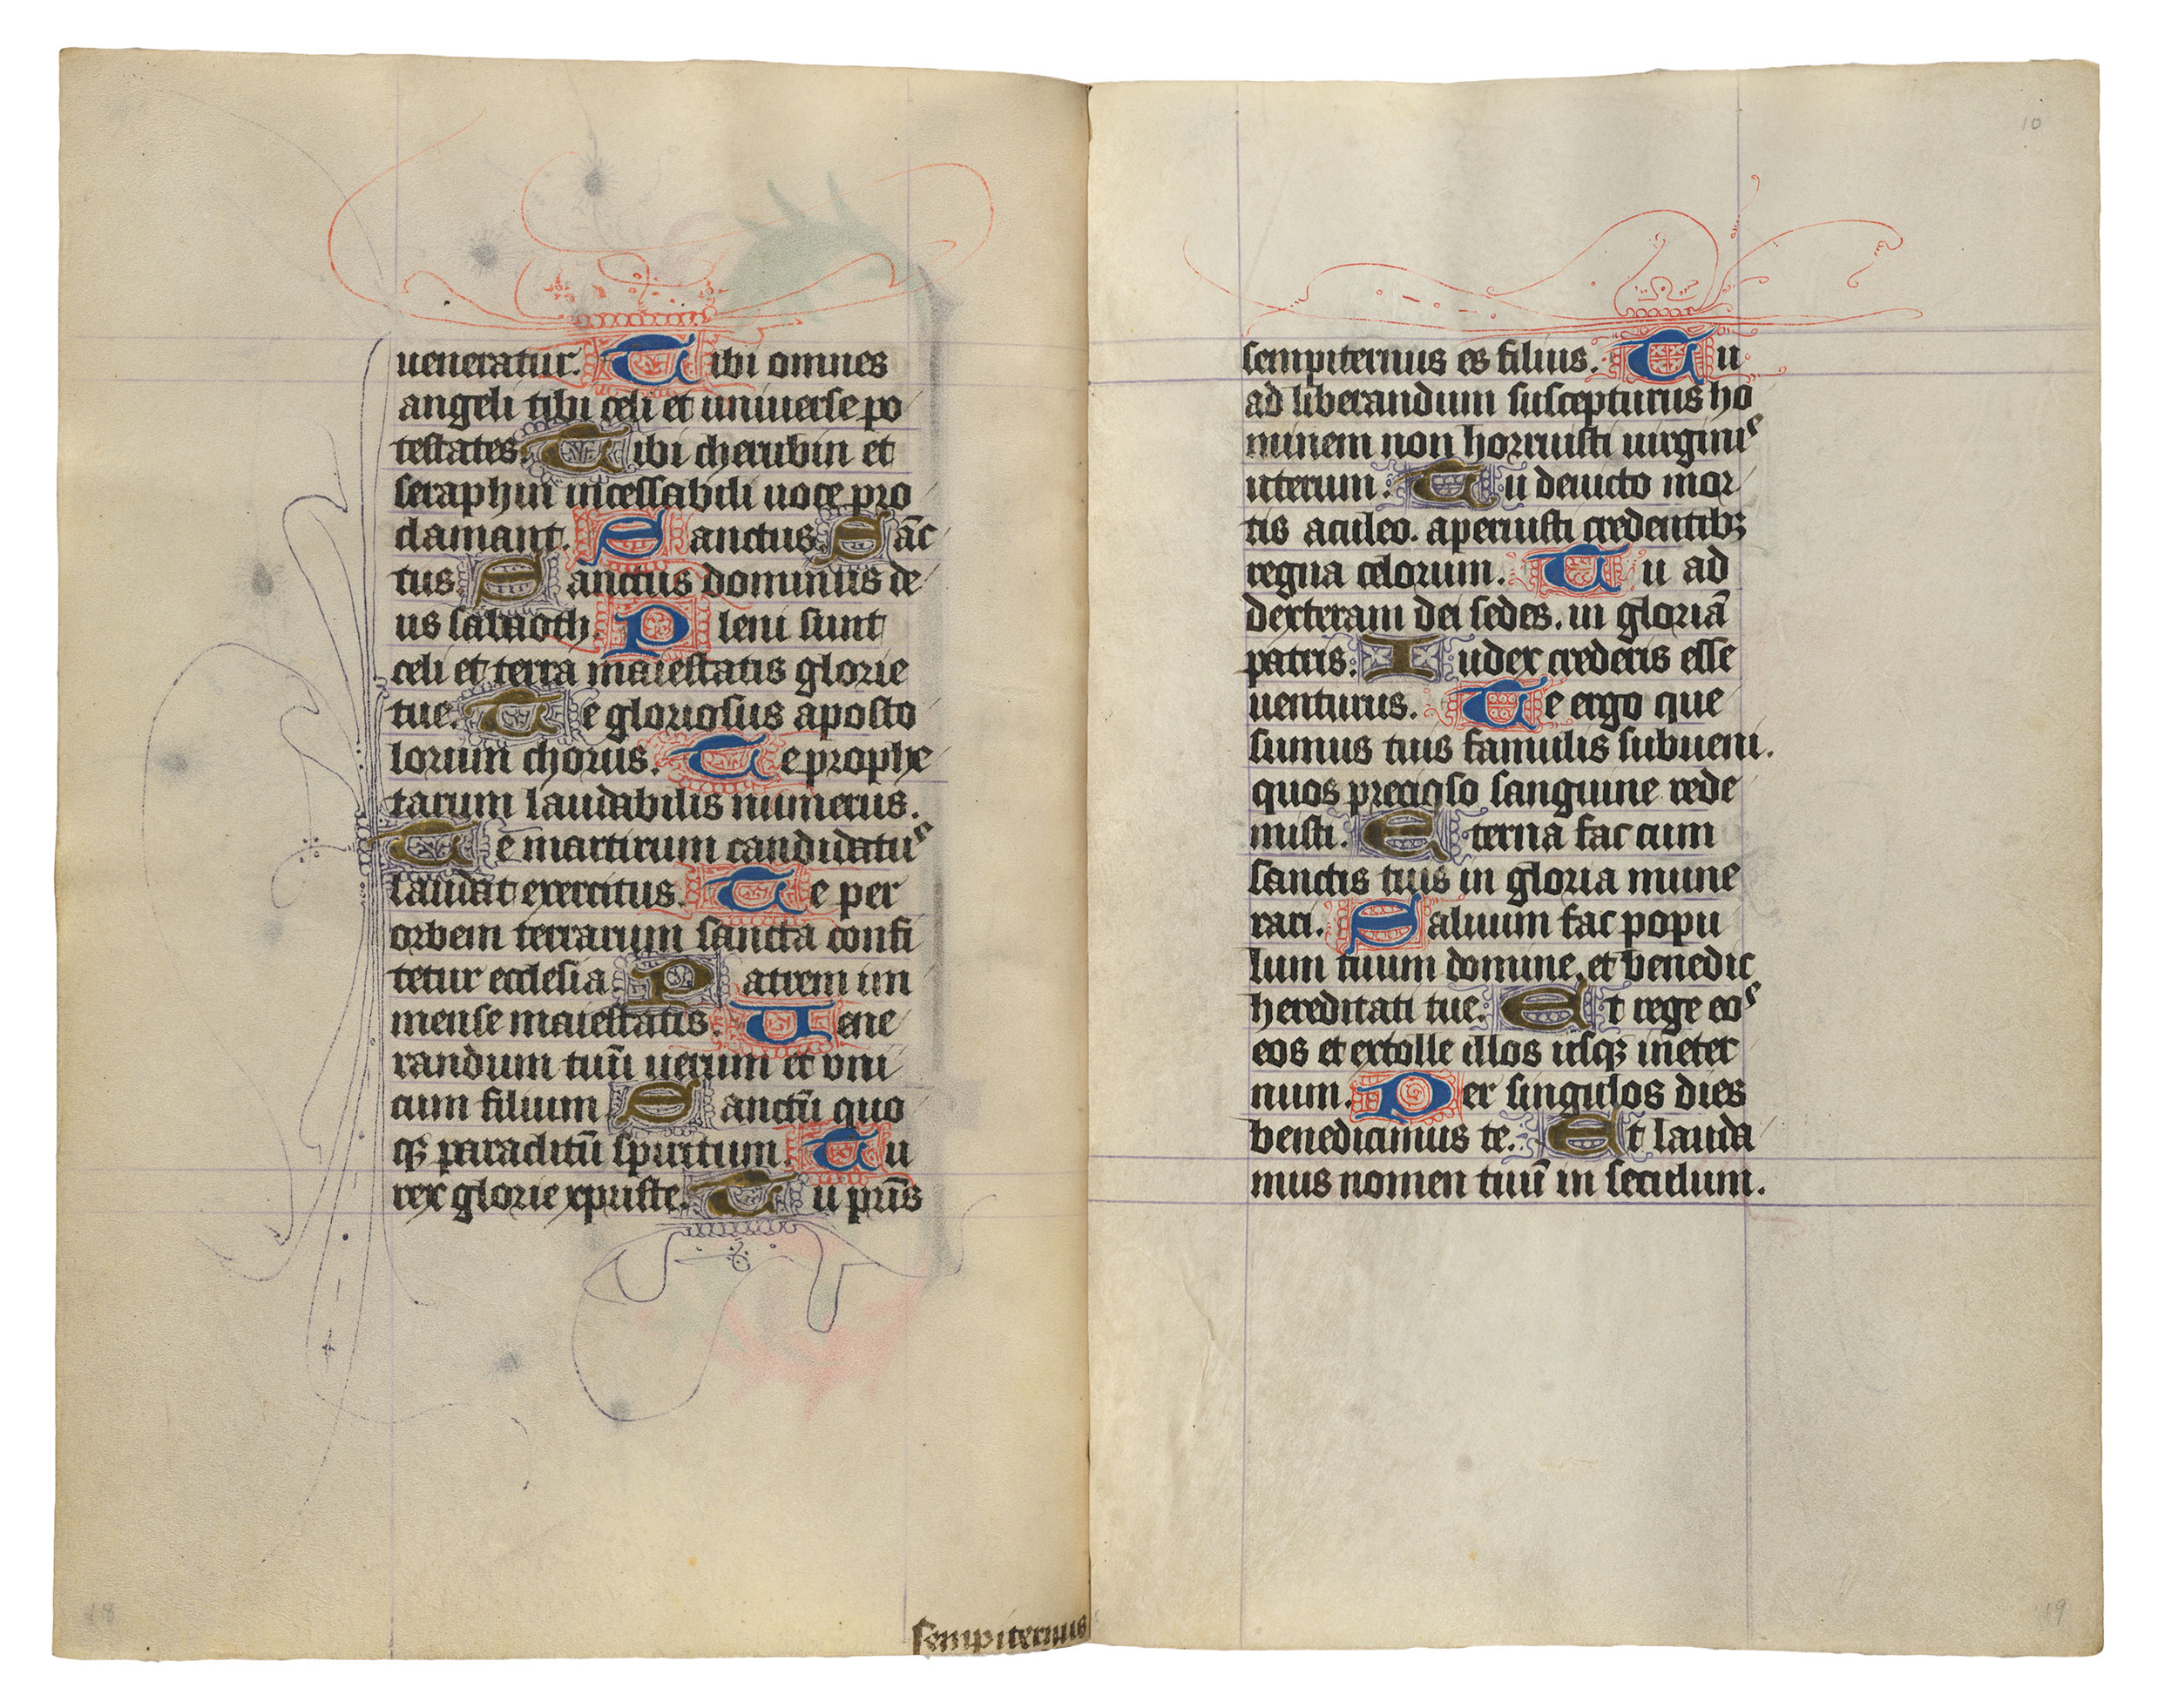 ueneratur. Tibi omnes
angeli tibi celi et uniuerse po
testates. Tibi cherubin et
seraphin incessabili uoce pro
clamant. Sanctus Sāc
tus. Sanctus dominus de
us sabaoth. Pleni sunt
celi et terra maiestatis glorie
tue. Te gloriosus aposto
lorum chorus. Te prophe
tarum laudabilis numerus.
Te martirum candidatus
laudat exercitus. Te per
orbem terrarum sancta confi
tetur ecclesia Patrem im
mense maiestatis. Uene
randum tuū uerum et vni
cum filium Sanctū quo
qꝫ paraclitū spiritum. Tu
rex glorie xpriste. Tu pr̄is
sempiternus
10
sempiternus es filius. Tu
ad liberandum suscepturus ho
minem non horruisti uirginis
uterum. Tu deuicto mor
tis aculeo. aperuisti credentibꝫ
regna celorum. Tu ad
dexteram dei sedes. in gloriā
patris. Iudex crederis esse
uenturus. Te ergo que
sumus tuis famulis subueni.
quos precioso sanguine rede
misti. Eterna fac cum
sanctis tuis in gloria mune
rari. Saluum fac popu
lum tuum domine, et benedic
hereditati tue. Et rege eos
eos et extolle illos usqꝫ ineter
num. Per singulos dies
benedicimus te. Et lauda
mus nomen tuū in seculum.
18
19